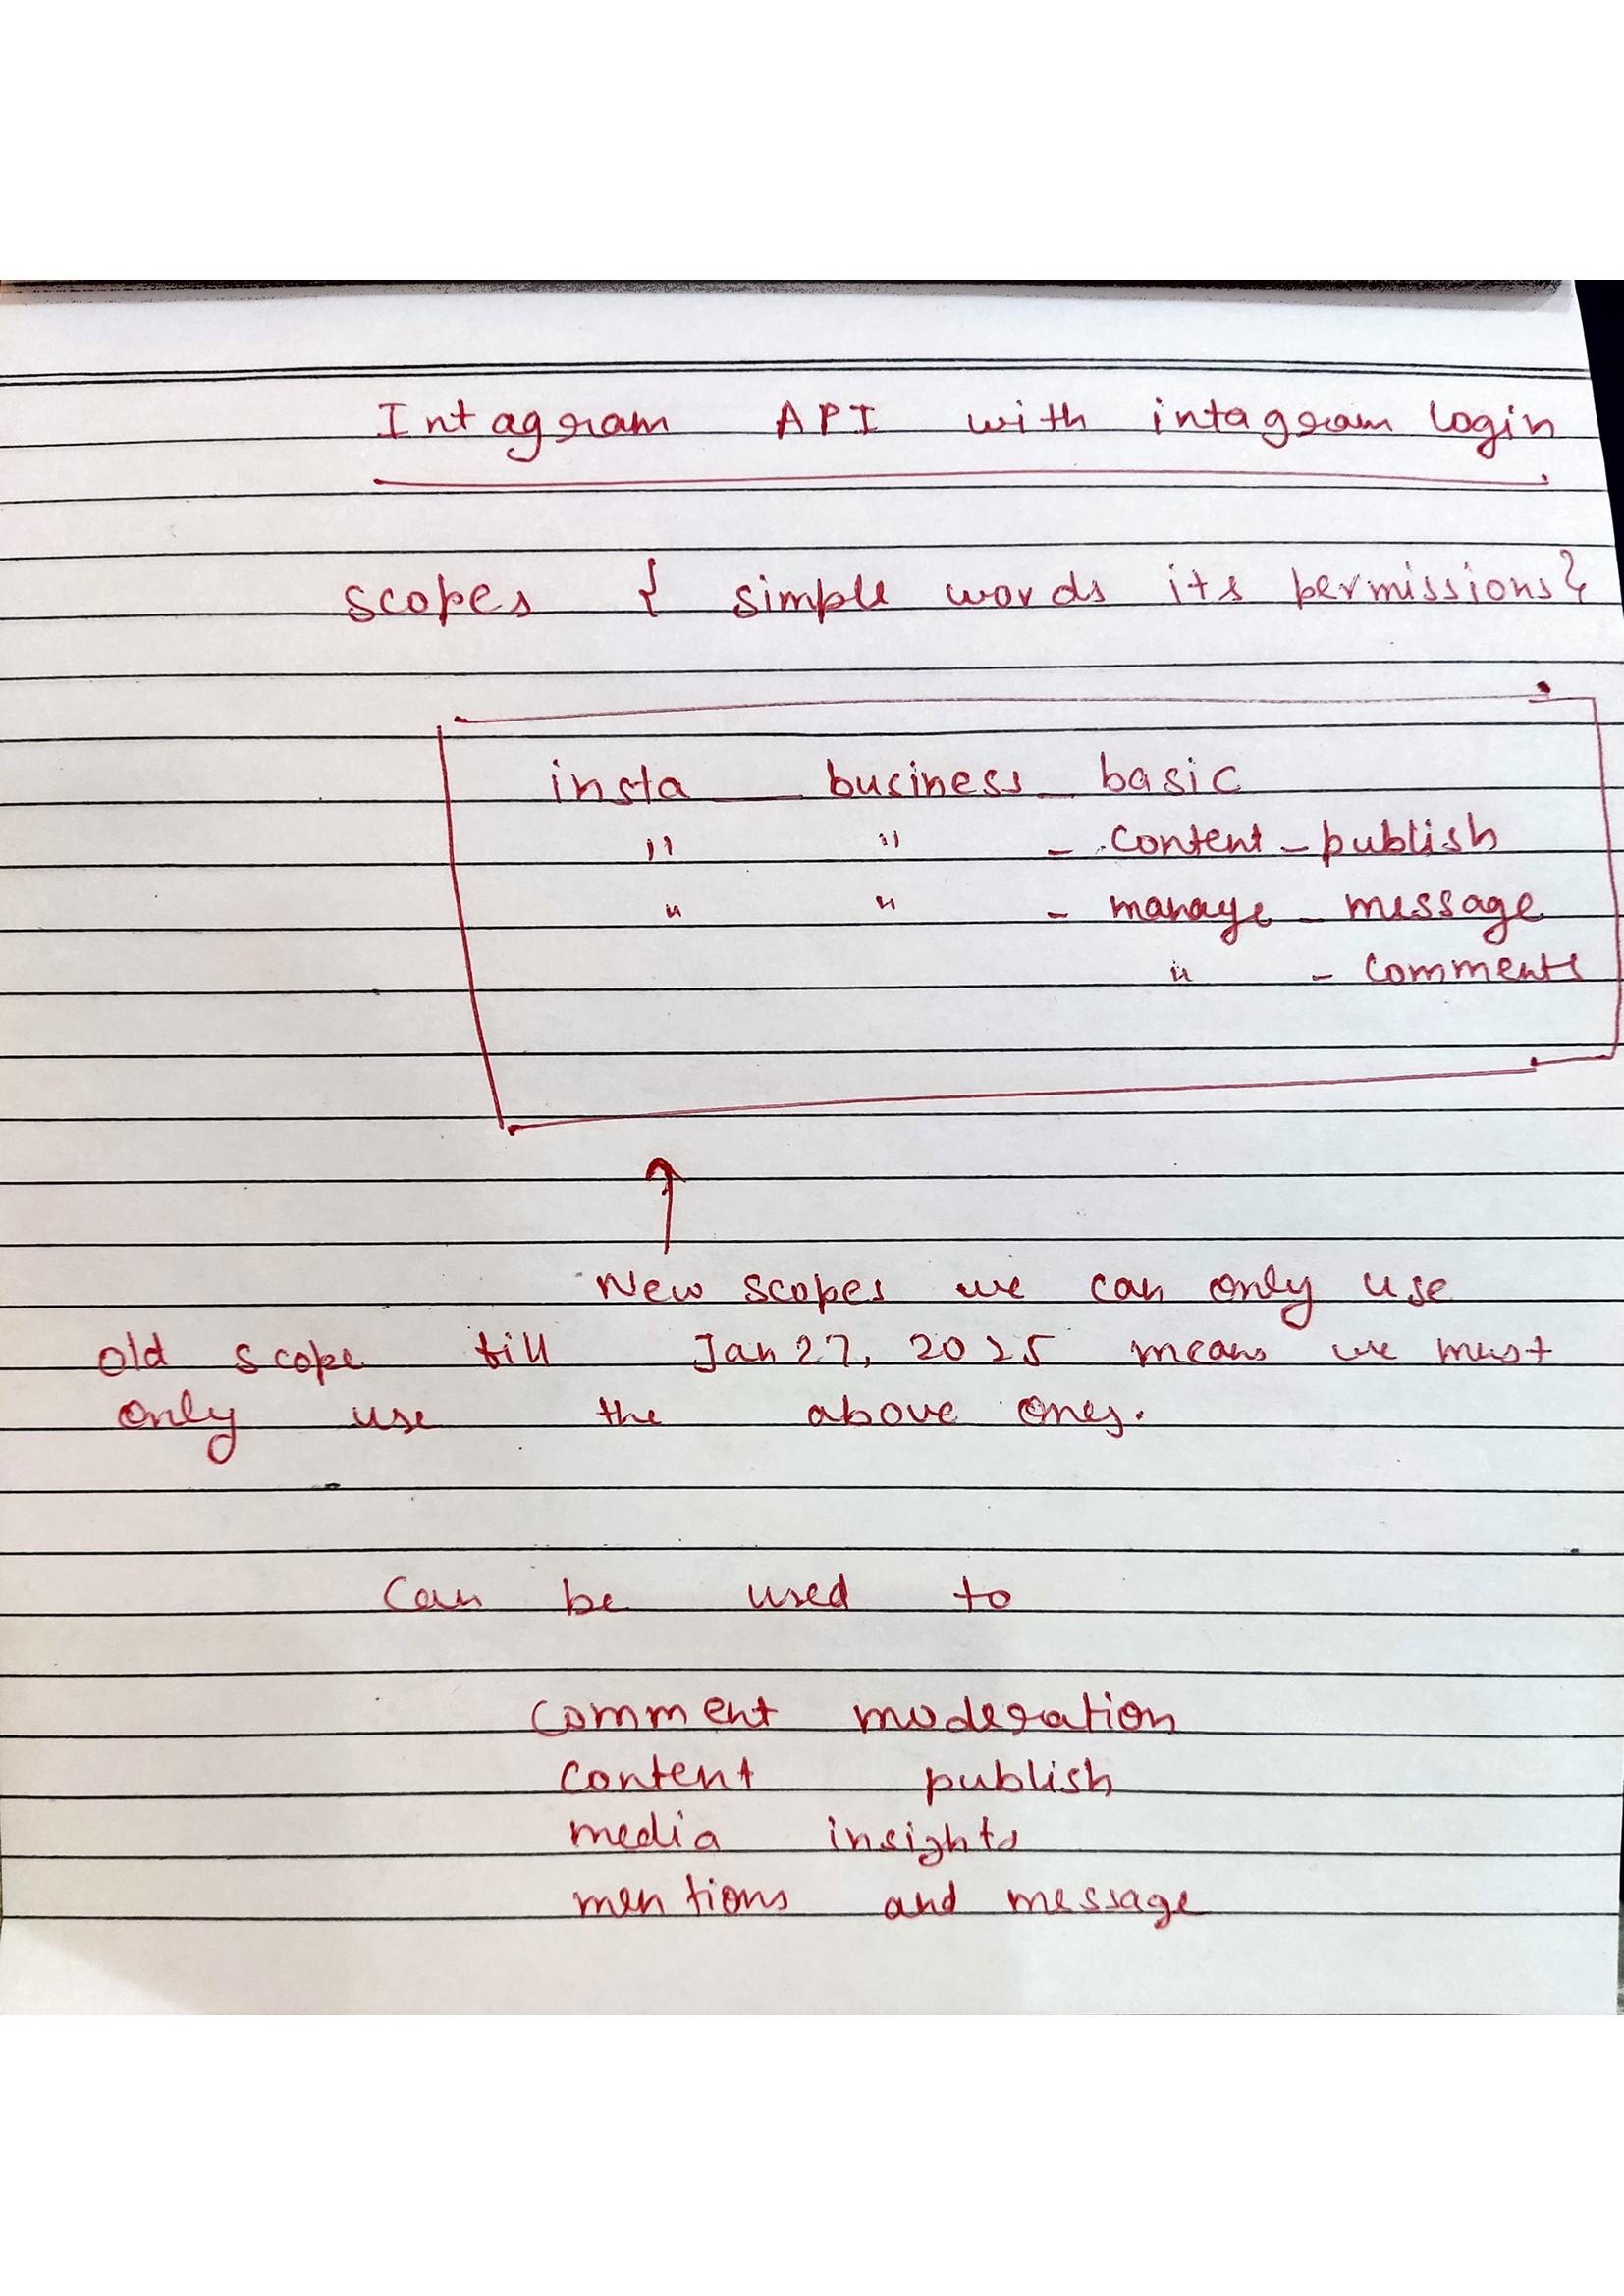 Intagram API with intagram login
scopes { simple words its permissions }
insta __ business _ basic
" " _ content _ publish
" " _ manage _ message
" _ comments
New scopes we can only use
old scope till Jan 27, 2025 means we must
only use the above ones.
Can be used to
comment moderation
content publish
media insights
mentions and message